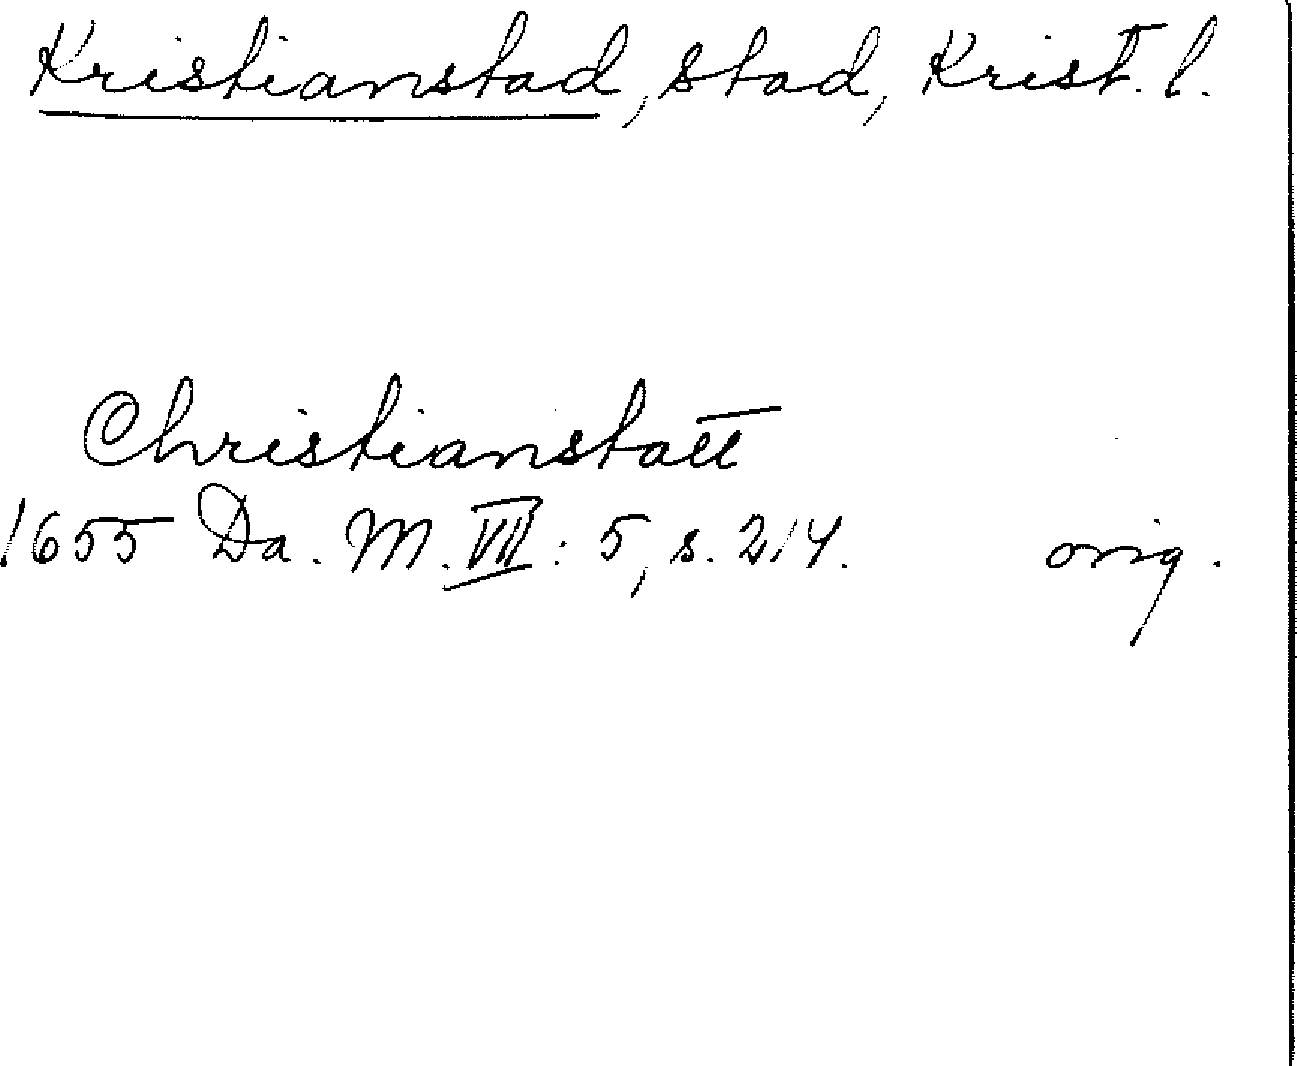 Kristianstad, stad, Krist. l.
Christianstatt
1655 Da. M. VII: 5, s. 214. orig.